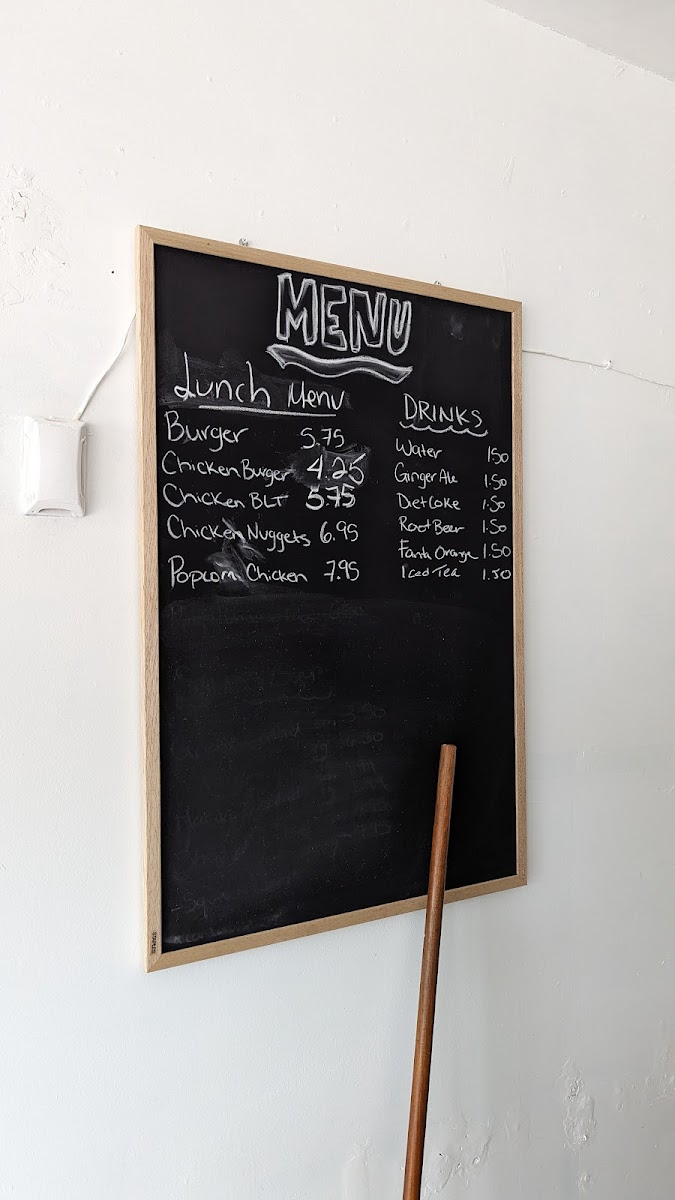 MENU
Lunch Menu
Burger 5.75
Chicken Burger 4.25
Chicken BLT 5.75
Chicken Nuggets 6.95
Popcorn Chicken 7.95
DRINKS
Water 1.50
Ginger Ale 1.50
Diet Coke 1.50
Root Beer 1.50
Fanta Orange 1.50
Iced Tea 1.50